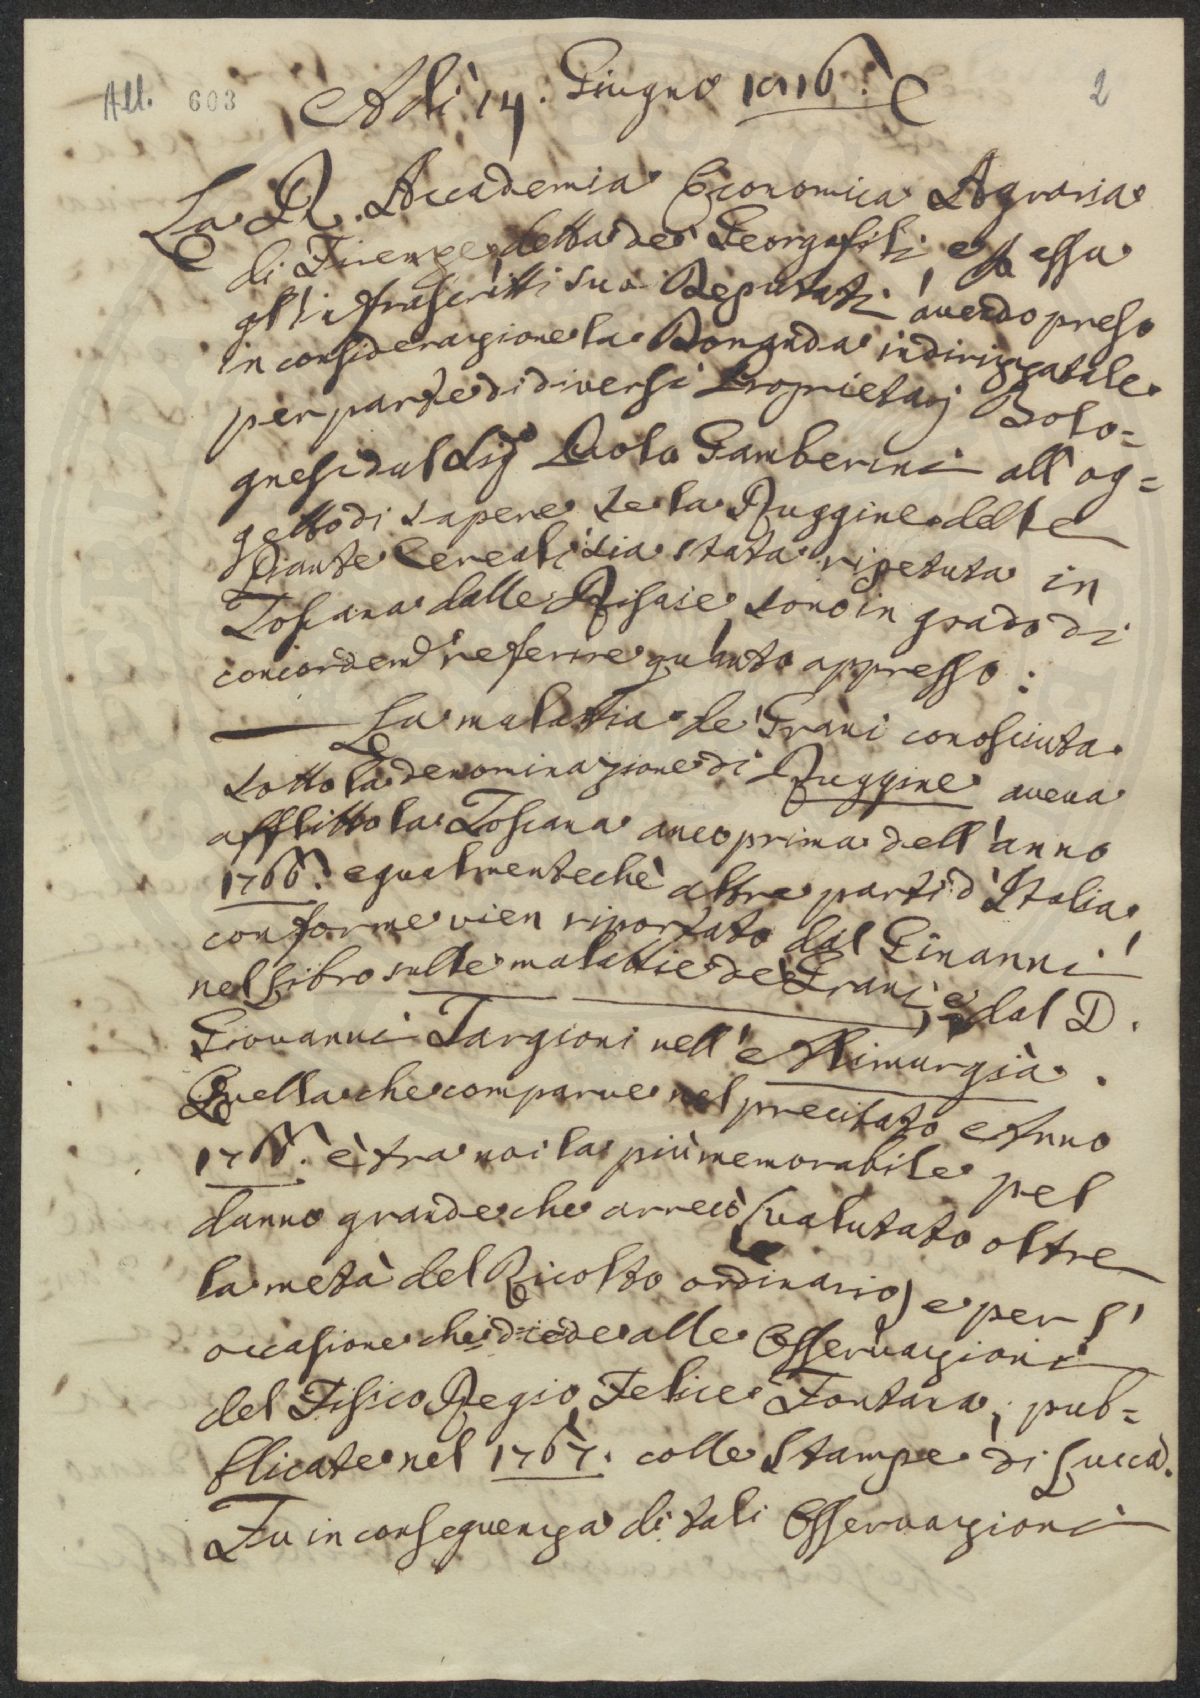 All. 603
2
Adì 14. Giugno 1816.
La R. Accademia Economica Agraria
di Firenze detta dei Georgofili, e p essa
gl'infrascritti suoi Deputati avendo preso
in considerazione la Domanda indirizzatale
per parte di diversi Proprietarj Bolo=
gnesi dal Sig.e Paolo Gamberini all'og=
getto di sapere se la Ruggine delle
Piante Cereali sia stata ripetuta in
Toscana dalle Risaie, sono in grado di
concordem.e referire quanto appresso:
La malattia de' Grani conosciuta
sotto la denominazione di Ruggine aveva
afflitto la Toscana anco prima dell'anno
1766. egualmente che altre parti d'Italia,
conforme vien riportato dal Ginanni
nel Libro sulle malattie de' Grani, e dal D.
Giovanni Targioni nell'Alimurgia.
Quella che comparve nel precitato Anno
1766. è tra noi la più memorabile pel
danno grande che arrecò (valutato oltre
la metà del Ricolto ordinario) e per l'
occasione che diede alle Osservazioni
del Fisico Regio Felice Fontana, pub=
blicate nel 1767. colle Stampe di Lucca.
Fu in conseguenza di tali Osservazioni